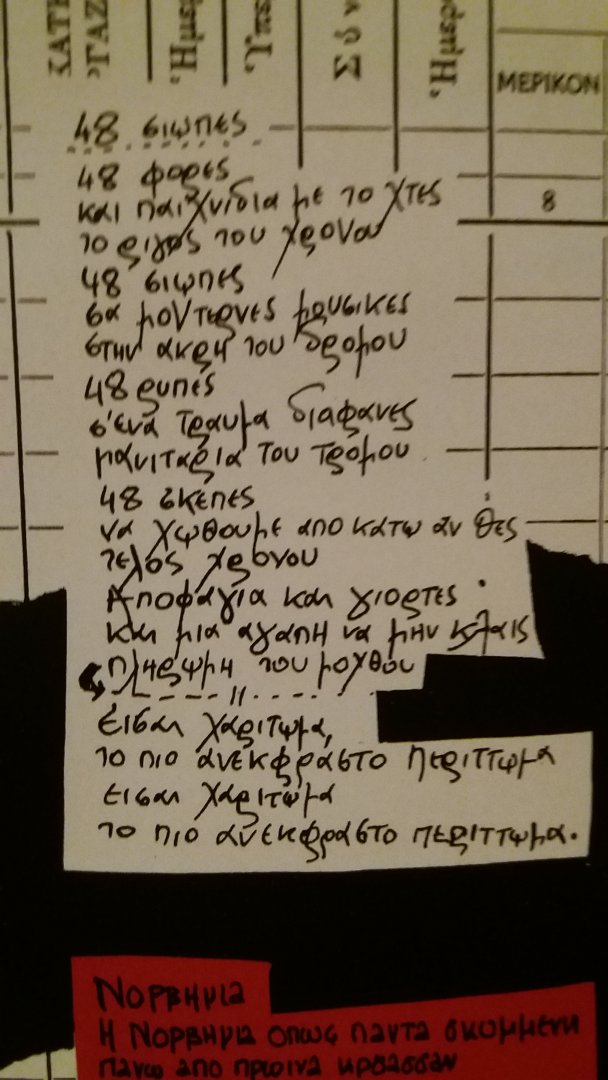 ΜΕΡΙΚΟΝ
8
48 σιωπες
48 φορες
και παιχνιδια με το χτες
το ριγος του χρονου
48 σιωπες
σα μοντερνες μουσικες
στην ακρη του δρομου
48 ρυπες
σ'ενα τραυμα διαφανες
μανιταρια του τρομου
48 σκεπες
να χωθουμε απο κατω αν θες
τελος χρονου
Αποφαγια και γιορτες
και μια αγαπη να μην κλαις
πληρωμη του μοχθου
εισαι χαριτωμα,
το πιο ανεκφραστο περιττωμα
εισαι χαριτωμα
το πιο ανεκφραστο περιττωμα.
ΝΟΡΒΗΓΙΑ
Η ΝΟΡΒΗΓΙΑ οπως παντα σκυμμενη
πανω απο πρωινα κρουασσαν